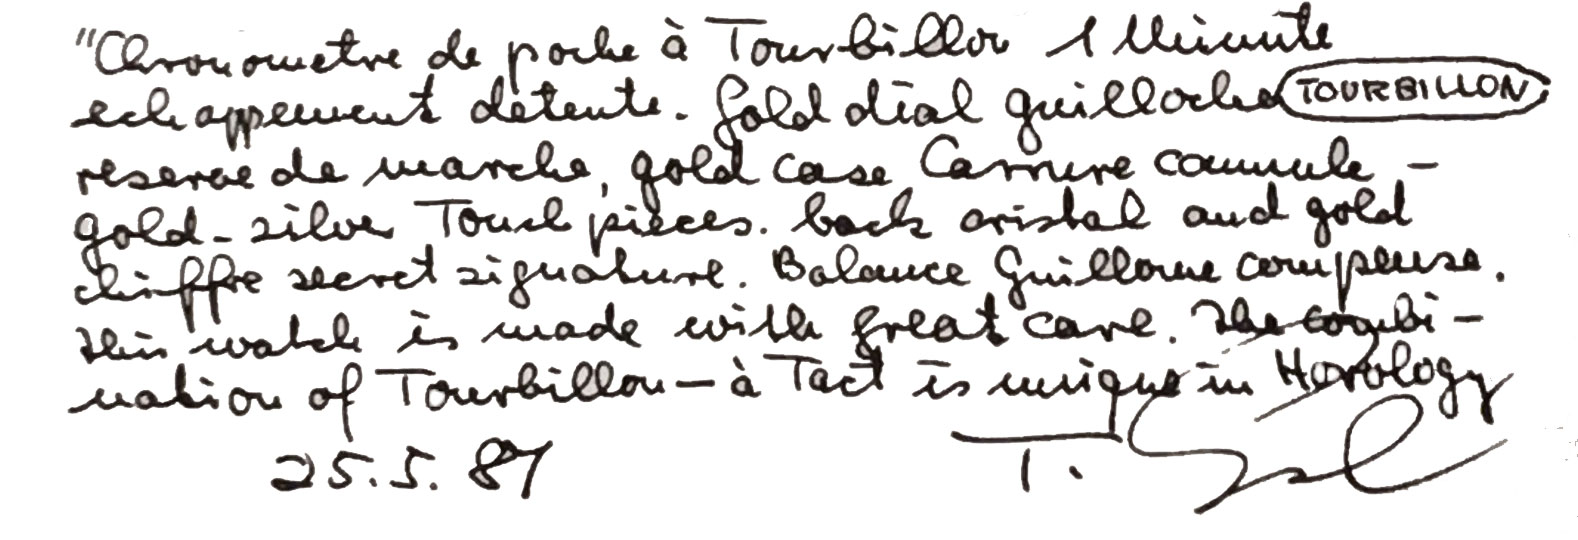 "Chronometre de poche à Tourbillon 1 Minute
echappement detente. Gold dial guilloche TOURBILLON
reserve de marche, gold case Carrure cannule -
gold - silver Touch pieces. back cristal and gold
chiffre secret signature. Balance Guillaume compense.
this watch is made with great care. The combi -
nation of Tourbillon - à Tact is unique in Horology
25.5.87 T.